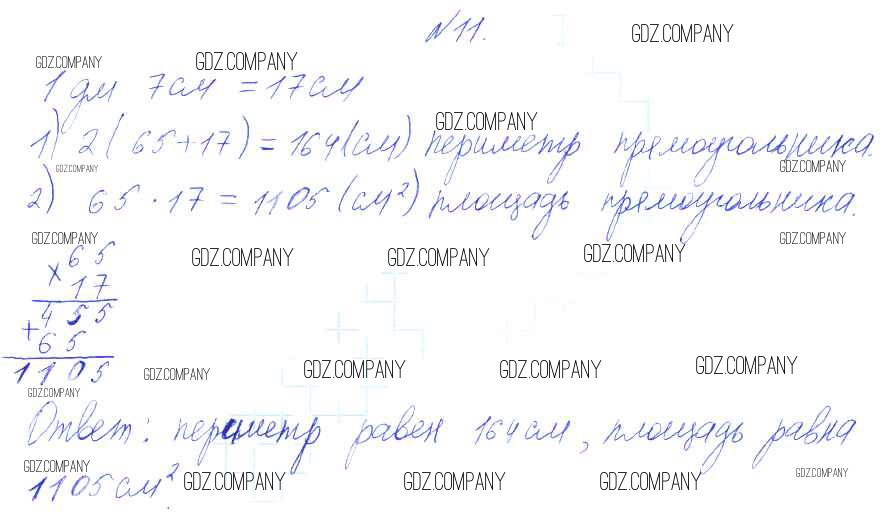 №11.
GDZ.COMPANY
GDZ.COMPANY GDZ.COMPANY
1 дм 7см = 17см
GDZ.COMPANY
1) 2(65+17)=164(см) периметр прямоугольника.
GDZ.COMPANY GDZ.COMPANY
2) 65·17=1105(см²) площадь прямоугольника.
GDZ.COMPANY GDZ.COMPANY GDZ.COMPANY GDZ.COMPANY GDZ.COMPANY
65
×17
455
+65
1105
GDZ.COMPANY GDZ.COMPANY GDZ.COMPANY GDZ.COMPANY
GDZ.COMPANY
Ответ: периметр равен 164см, площадь равна
GDZ.COMPANY
1105см²
GDZ.COMPANY GDZ.COMPANY GDZ.COMPANY GDZ.COMPANY